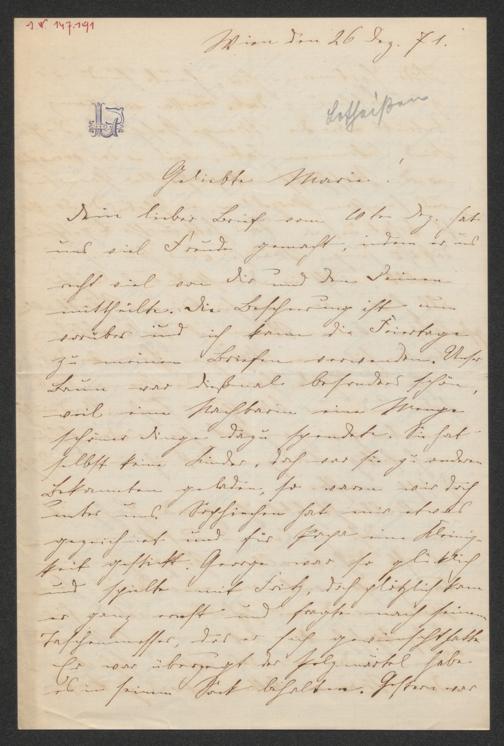 I.N. 147.191
Wien den 26 Dez. 71.
Lotheißen
Geliebte Marie!
Dein lieber Brief vom 10ten Dez. hat
uns viel Freude gemacht, indem er uns
recht viel von Dir und den Deinen
mittheilte. Die Bescherung ist nun
vorüber und ich kann die Feiertage
zu meinen Briefen verwenden. Unser
Baum war dießmal besonders schön,
weil eine Nachbarin eine Menge
schöner Dinge dazu spendete. Sie hat
selbst keine Kinder, doch war sie zu anderen
Bekannten geladen, so waren wir doch
unter uns. Sophiechen hat mir etwas
gezeichnet und für Papa eine Kleinig-
keit gestickt. George war so glücklich
und spielte mit Fritz, doch plötzlich kam
er ganz ernst und fragte nach seinem
Taschenmesser, das er sich gewünscht hatte
Er war überzeugt der Pelzmärtel habe
es in seinem Sack behalten. Gestern war